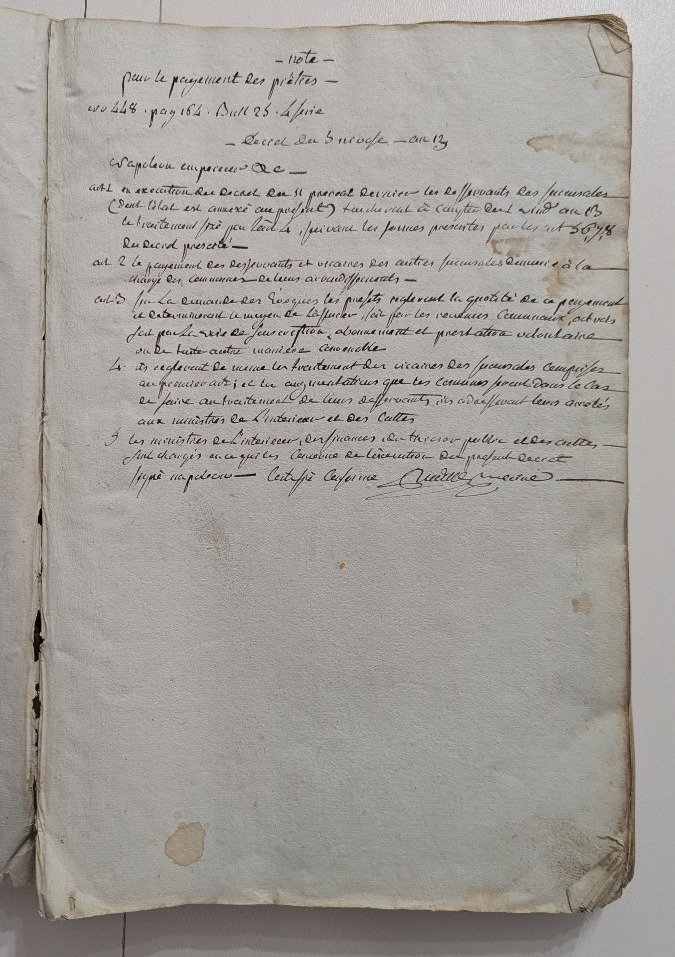 — note —
pour le payement des prêtres —
no 448 . pag 164 . Bull 25 . 4 serie
— Decret du 5 nivose — an 13
Napoleon empereur &c —
art 1 en execution du decret du 11 prereal dernier les desservants des succursales
(dont l'état est annexé au present) toucheront à compter du 1 vend an 13
le traitement fixé par l'art 4, suivant les formes prescrites par les art 5 6, 7, 8
du decret precité —
art 2 le payement des desservants et vicaires des autres succursales demeure à la
charge des communes de leurs arrondissements —
art 3 sur la demande des Evêques les prefets regleront la quotité de ce payement
et determineront le moyen de l'assurer, soit par les revenus communaux,
soit par la voie de souscription, abonnement et prestation volontaire
ou de toute autre maniere convenable
4. ils regleront de meme les traitement des vicaires des succursales comprises
au premier art; et les augmentations que les comunes seront dans le cas
de faire au traitement de leurs desservants, ils adresseront leurs arretés
aux ministres de L'interieur et des Cultes
5 les ministres de L'interieur, des finances, du tresor public et des cultes —
sont chargés en ce qui les concerne de l'execution du present decret
signé napoleon — Certifié Conforme